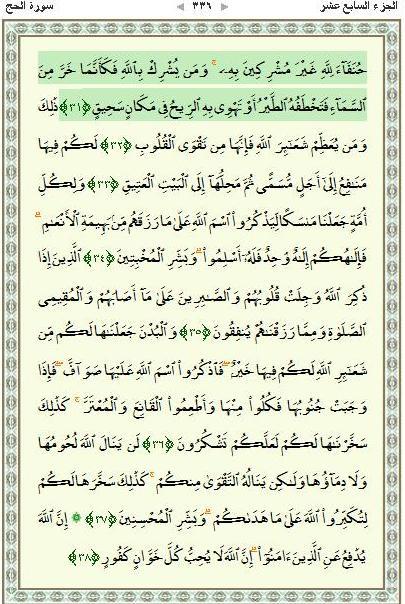 الجزء السابع عشر ٣٣٦ سورة الحج
حُنَفَآءَ لِلَّهِ غَيْرَ مُشْرِكِينَ بِهِۦ ۚ وَمَن يُشْرِكْ بِٱللَّهِ فَكَأَنَّمَا خَرَّ مِنَ
ٱلسَّمَآءِ فَتَخْطَفُهُ ٱلطَّيْرُ أَوْ تَهْوِى بِهِ ٱلرِّيحُ فِى مَكَانٍ سَحِيقٍ ﴿٣١﴾ ذَٰلِكَ
وَمَن يُعَظِّمْ شَعَـٰٓئِرَ ٱللَّهِ فَإِنَّهَا مِن تَقْوَى ٱلْقُلُوبِ ﴿٣٢﴾ لَكُمْ فِيهَا
مَنَـٰفِعُ إِلَىٰٓ أَجَلٍ مُّسَمًّى ثُمَّ مَحِلُّهَآ إِلَى ٱلْبَيْتِ ٱلْعَتِيقِ ﴿٣٣﴾ وَلِكُلِّ
أُمَّةٍ جَعَلْنَا مَنسَكًا لِّيَذْكُرُوا۟ ٱسْمَ ٱللَّهِ عَلَىٰ مَا رَزَقَهُم مِّنۢ بَهِيمَةِ ٱلْأَنْعَـٰمِ ۗ
فَإِلَـٰهُكُمْ إِلَـٰهٌ وَٰحِدٌ فَلَهُۥٓ أَسْلِمُوا۟ ۗ وَبَشِّرِ ٱلْمُخْبِتِينَ ﴿٣٤﴾ ٱلَّذِينَ إِذَا
ذُكِرَ ٱللَّهُ وَجِلَتْ قُلُوبُهُمْ وَٱلصَّـٰبِرِينَ عَلَىٰ مَآ أَصَابَهُمْ وَٱلْمُقِيمِى
ٱلصَّلَوٰةِ وَمِمَّا رَزَقْنَـٰهُمْ يُنفِقُونَ ﴿٣٥﴾ وَٱلْبُدْنَ جَعَلْنَـٰهَا لَكُم مِّن
شَعَـٰٓئِرِ ٱللَّهِ لَكُمْ فِيهَا خَيْرٌ ۖ فَٱذْكُرُوا۟ ٱسْمَ ٱللَّهِ عَلَيْهَا صَوَآفَّ ۖ فَإِذَا
وَجَبَتْ جُنُوبُهَا فَكُلُوا۟ مِنْهَا وَأَطْعِمُوا۟ ٱلْقَانِعَ وَٱلْمُعْتَرَّ ۚ كَذَٰلِكَ
سَخَّرْنَـٰهَا لَكُمْ لَعَلَّكُمْ تَشْكُرُونَ ﴿٣٦﴾ لَن يَنَالَ ٱللَّهَ لُحُومُهَا
وَلَا دِمَآؤُهَا وَلَـٰكِن يَنَالُهُ ٱلتَّقْوَىٰ مِنكُمْ ۚ كَذَٰلِكَ سَخَّرَهَا لَكُمْ
لِتُكَبِّرُوا۟ ٱللَّهَ عَلَىٰ مَا هَدَىٰكُمْ ۗ وَبَشِّرِ ٱلْمُحْسِنِينَ ﴿٣٧﴾ ۞ إِنَّ ٱللَّهَ
يُدَٰفِعُ عَنِ ٱلَّذِينَ ءَامَنُوٓا۟ ۗ إِنَّ ٱللَّهَ لَا يُحِبُّ كُلَّ خَوَّانٍ كَفُورٍ ﴿٣٨﴾